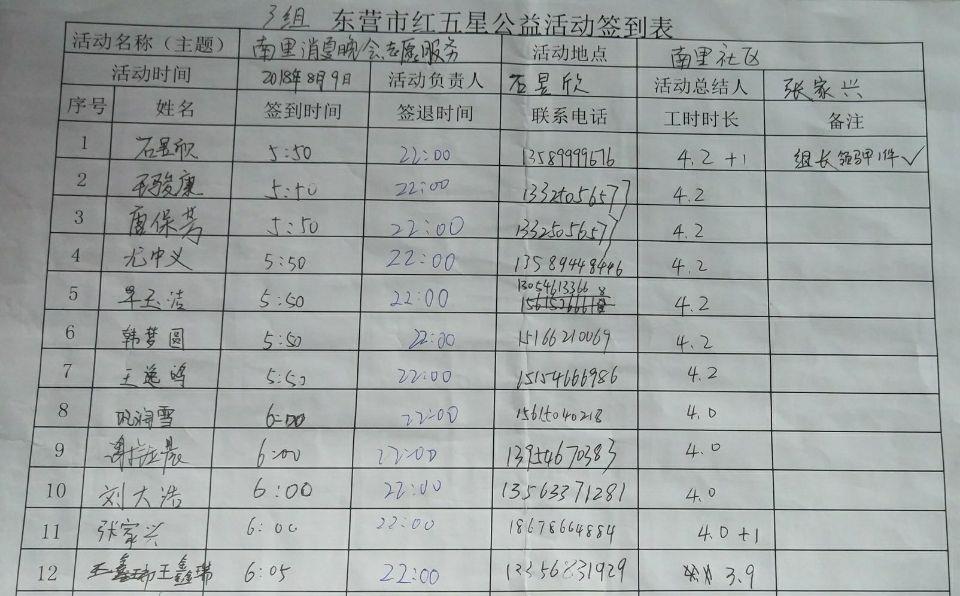 3组 东营市红五星公益活动签到表
活动名称（主题） 南里消夏晚会志愿服务 活动地点 南里社区
活动时间 2018年8月9日 活动负责人 石昱欣 活动总结人 张家兴
序号 姓名 签到时间 签退时间 联系电话 工时时长 备注
1 石昱欣 5:50 22:00 13589999676 4.2 +1 组长 领弹1件✓
2 骏康 5:50 22:00 13325056577 4.2
3 唐保芳 5:50 22:00 13325056577 4.2
4 尤中义 5:50 22:00 13589448446 4.2
5 玉洁 5:50 22:00 13054613366 4.2
6 韩梦圆 5:50 22:00 15166210069 4.2
7 王逸鸣 5:50 22:00 15154666986 4.2
8 巩润雪 6:00 22:00 15615040218 4.0
9 谢 晨 6:00 22:00 13954670383 4.0
10 刘大浩 6:00 22:00 13563371281 4.0
11 张家兴 6:00 22:00 18678664884 4.0 +1
12 王鑫瑞 6:05 22:00 13356831929 3.9